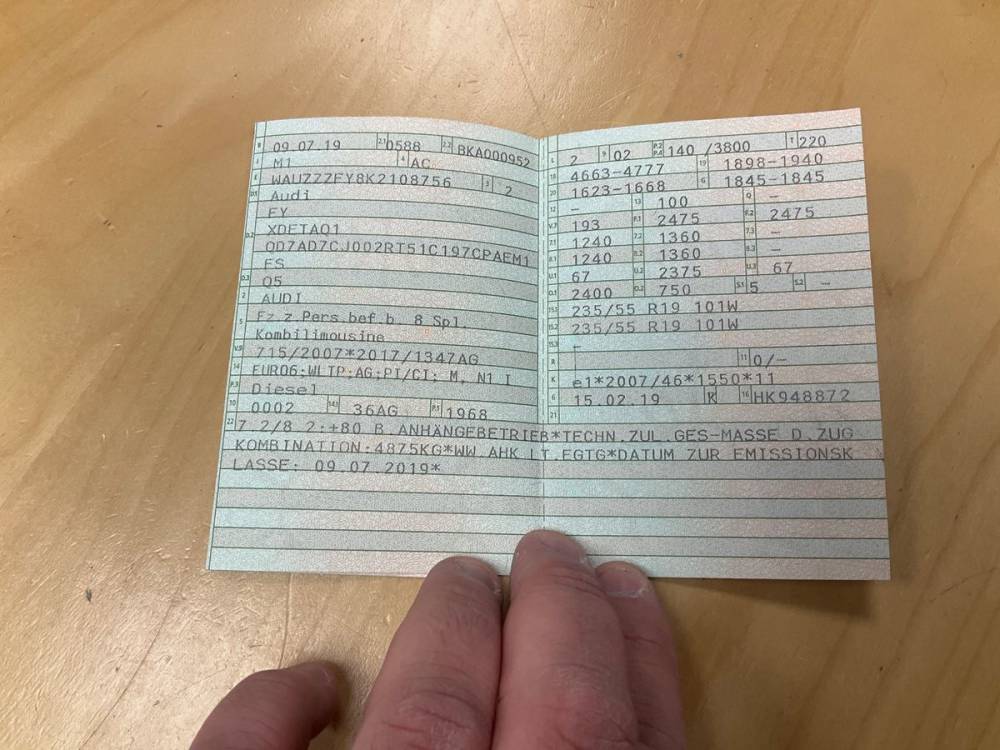 B 09.07.19 2.1 0588 2.2 BKA000952
J M1 4 AC
E WAUZZZFY8K2108756 3 2
D.1 Audi
FY
D.2 XDETAQ1
QD7AD7CJ002RT51C197CPAEM1
FS
D.3 Q5
2 AUDI
5 Fz.z.Pers.bef.b. 8 Spl.
Kombilimousine
V.9 715/2007*2017/1347AG
14 EURO6;WLTP;AG;PI/CI; M, N1 I
P.3 Diesel
10 0002 14.1 36AG P.1 1968
L 2 9 02 P.2 P.4 140 /3800 T 220
18 4663-4777 19 1898-1940
20 1623-1668 G 1845-1845
12 – 13 100 Q –
V.7 193 F.1 2475 F.2 2475
7.1 1240 7.2 1360 7.3 –
8.1 1240 8.2 1360 8.3 –
U.1 67 U.2 2375 U.3 67
O.1 2400 O.2 750 S.1 5 S.2 –
15.1 235/55 R19 101W
15.2 235/55 R19 101W
15.3 –
R 11 0/–
K e1*2007/46*1550*11
6 15.02.19 17 K 16 HK948872
21
22 7.2/8.2:+80 B.ANHÄNGEBETRIEB*TECHN.ZUL.GES-MASSE D.ZUG
KOMBINATION:4875KG*WW.AHK LT.EGTG*DATUM ZUR EMISSIONSK
LASSE: 09.07.2019*